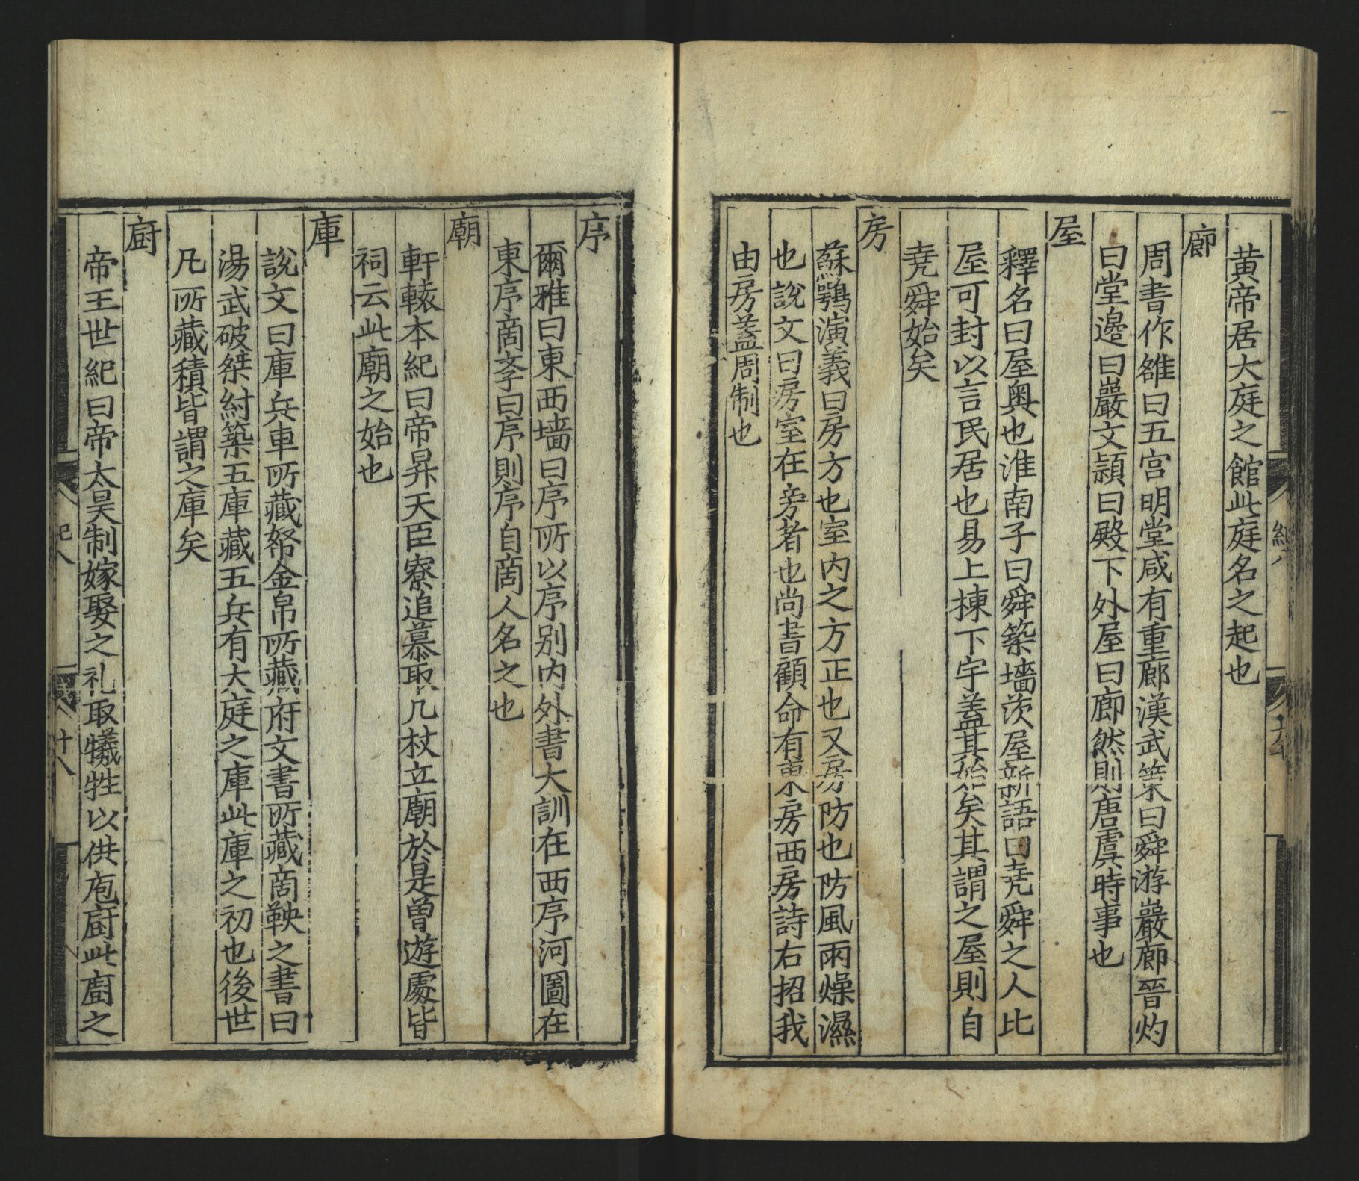 黃帝居大庭之館此庭名之起也
廊
周書作雒曰五宫明堂咸有重廊漢武策曰舜游巖廊晉灼
曰堂邊曰巖文頴曰殿下外屋曰廊然則唐虞時事也
屋
釋名曰屋奥也淮南子曰舜築墻茨屋新語曰堯舜之人比
屋可封以言民居也易上棟下宇盖其始矣其謂之屋則自
堯舜始矣
房
蘇鶚演義曰房方也室内之方正也又房防也防風雨燥濕
也說文曰房室在旁者也尚書顧命有東房西房詩右招我
由房盖周制也
序
爾雅曰東西墻曰序所以序别内外書大訓在西序河圖在
東序商孝曰序則序自商人名之也
廟
軒轅本紀曰帝昇天臣寮追慕取几杖立廟於是曾遊處皆
祠云此廟之始也
庫
說文曰庫兵車所藏帑金帛所藏府文書所藏商鞅之書曰
湯武破桀紂築五庫藏五兵有大庭之庫此庫之初也後世
凡所藏積皆謂之庫矣
廚
帝王世紀曰帝太昊制嫁娶之礼取犧牲以供庖廚此廚之
紀八
十八